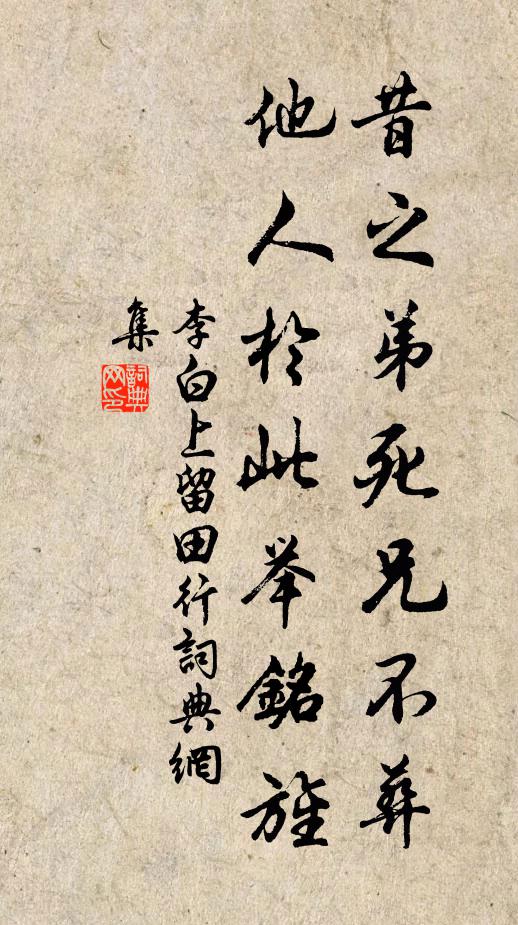 昔之弟死兄不葬
他人於此举銘旌
李白上留田行詞典網
集
詞典
网印